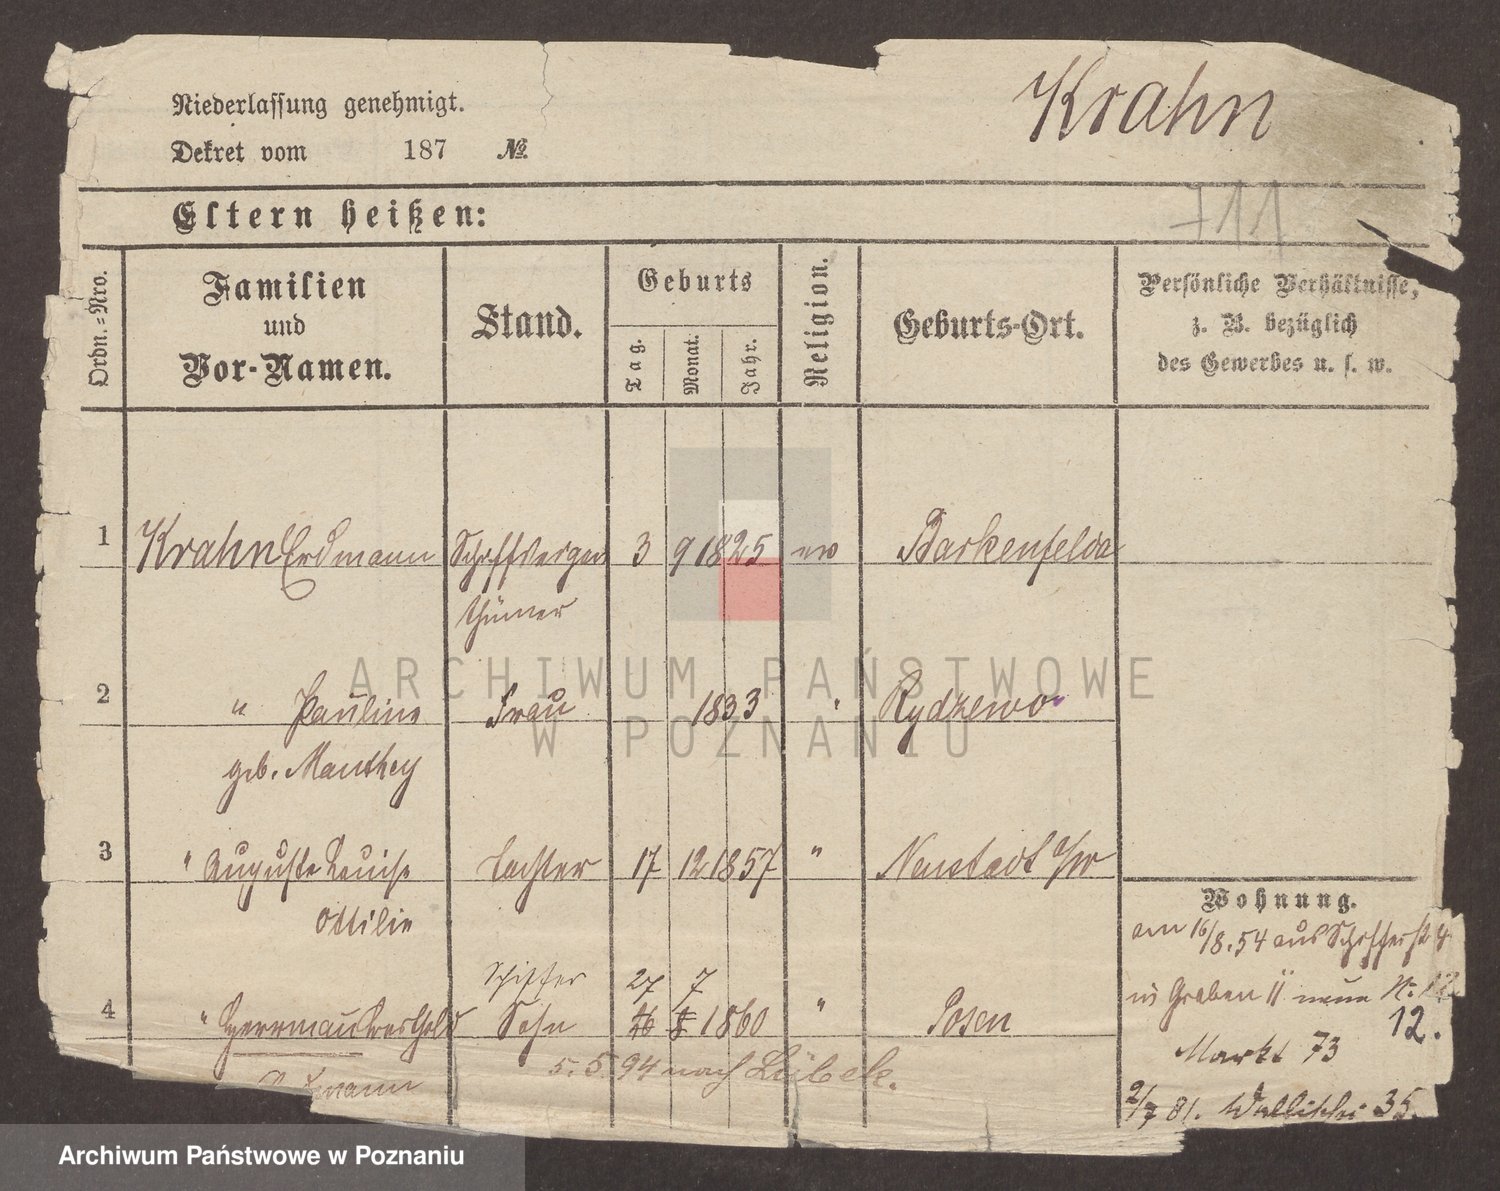 Krahn
Niederlassung genehmigt.
Dekret vom 187 No.
711
Eltern heißen:
Ordn.=Nro.
Familien
und
Vor-Namen.
Stand.
Geburts
Tag.
Monat.
Jahr.
Religion.
Geburts-Ort.
Persönliche Verhältnisse,
z. B. bezüglich
des Gewerbes u. s. w.
1 Krahn Erdmann Schiffseigen 3 9 1825 ev Barkenfelde
thümer
2 " Pauline Frau 1833 " Rydzewo
geb. Manthey
3 " Auguste Louise Tochter 17 12 1857 " Neustadt a/W
Ottilie
Schiffer 27 7
4 " Herrmann Sohn 26 8 1860 " Posen
5.5.94 nach Lübeck.
Wohnung.
am 16/8.54 aus Schifferst 4
in Graben 11 neue N. 12
12.
Markt 73
2/7 81. Wallischei 35.
ARCHIWUM PAŃSTWOWE
W POZNANIU
Archiwum Państwowe w Poznaniu